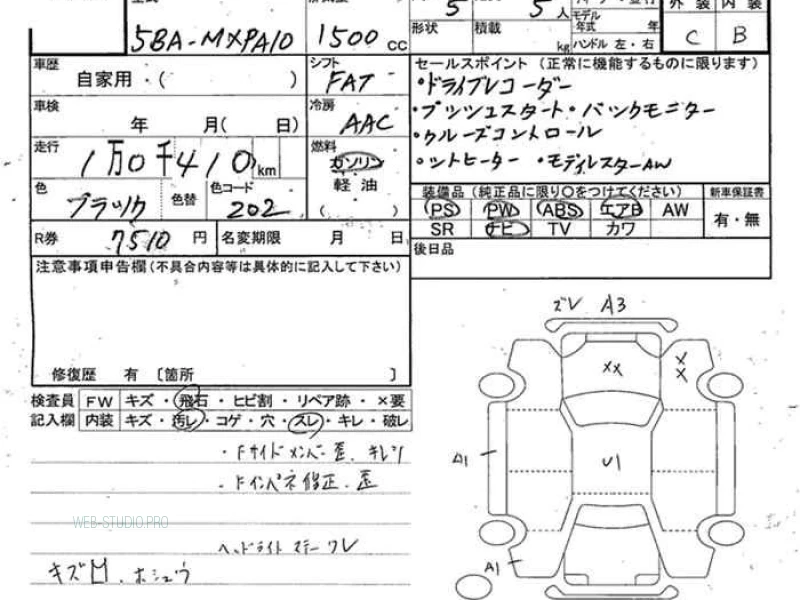 5 5人
形状 積載 kg
モデル年式 年
ハンドル 左・右
外装 内装
C B
5BA-MXPA10 1500cc
車歴 自家用・( )
シフト FAT
車検 年 月( 日)
冷房 AAC
走行 1万0千410km
燃料 ガソリン
軽油
( )
色 ブラック 色替 色コード 202
R券 7510円 名変期限 月 日
セールスポイント(正常に機能するものに限ります)
・ドライブレコーダー
・プッシュスタート・バックモニター
・クルーズコントロール
・シートヒーター ・モデリスタAW
装備品(純正品に限り〇をつけてください) 新車保証書
PS PW ABS エアB AW 有・無
SR ナビ TV カワ
後日品
注意事項申告欄(不具合内容等は具体的に記入して下さい)
修復歴 有 〔箇所 〕
検査員 FW キズ・飛石・ヒビ割・リペア跡・×要
記入欄 内装 キズ・汚レ・コゲ・穴・スレ・キレ・破レ
・Fサイドメンバー歪、キレツ
・Fインパネ修正、歪
WEB-STUDIO.PRO
ヘッドライトステーワレ
キズ凹、ホシュウ
ズレ A3
XX
XX
A1
U1
A1